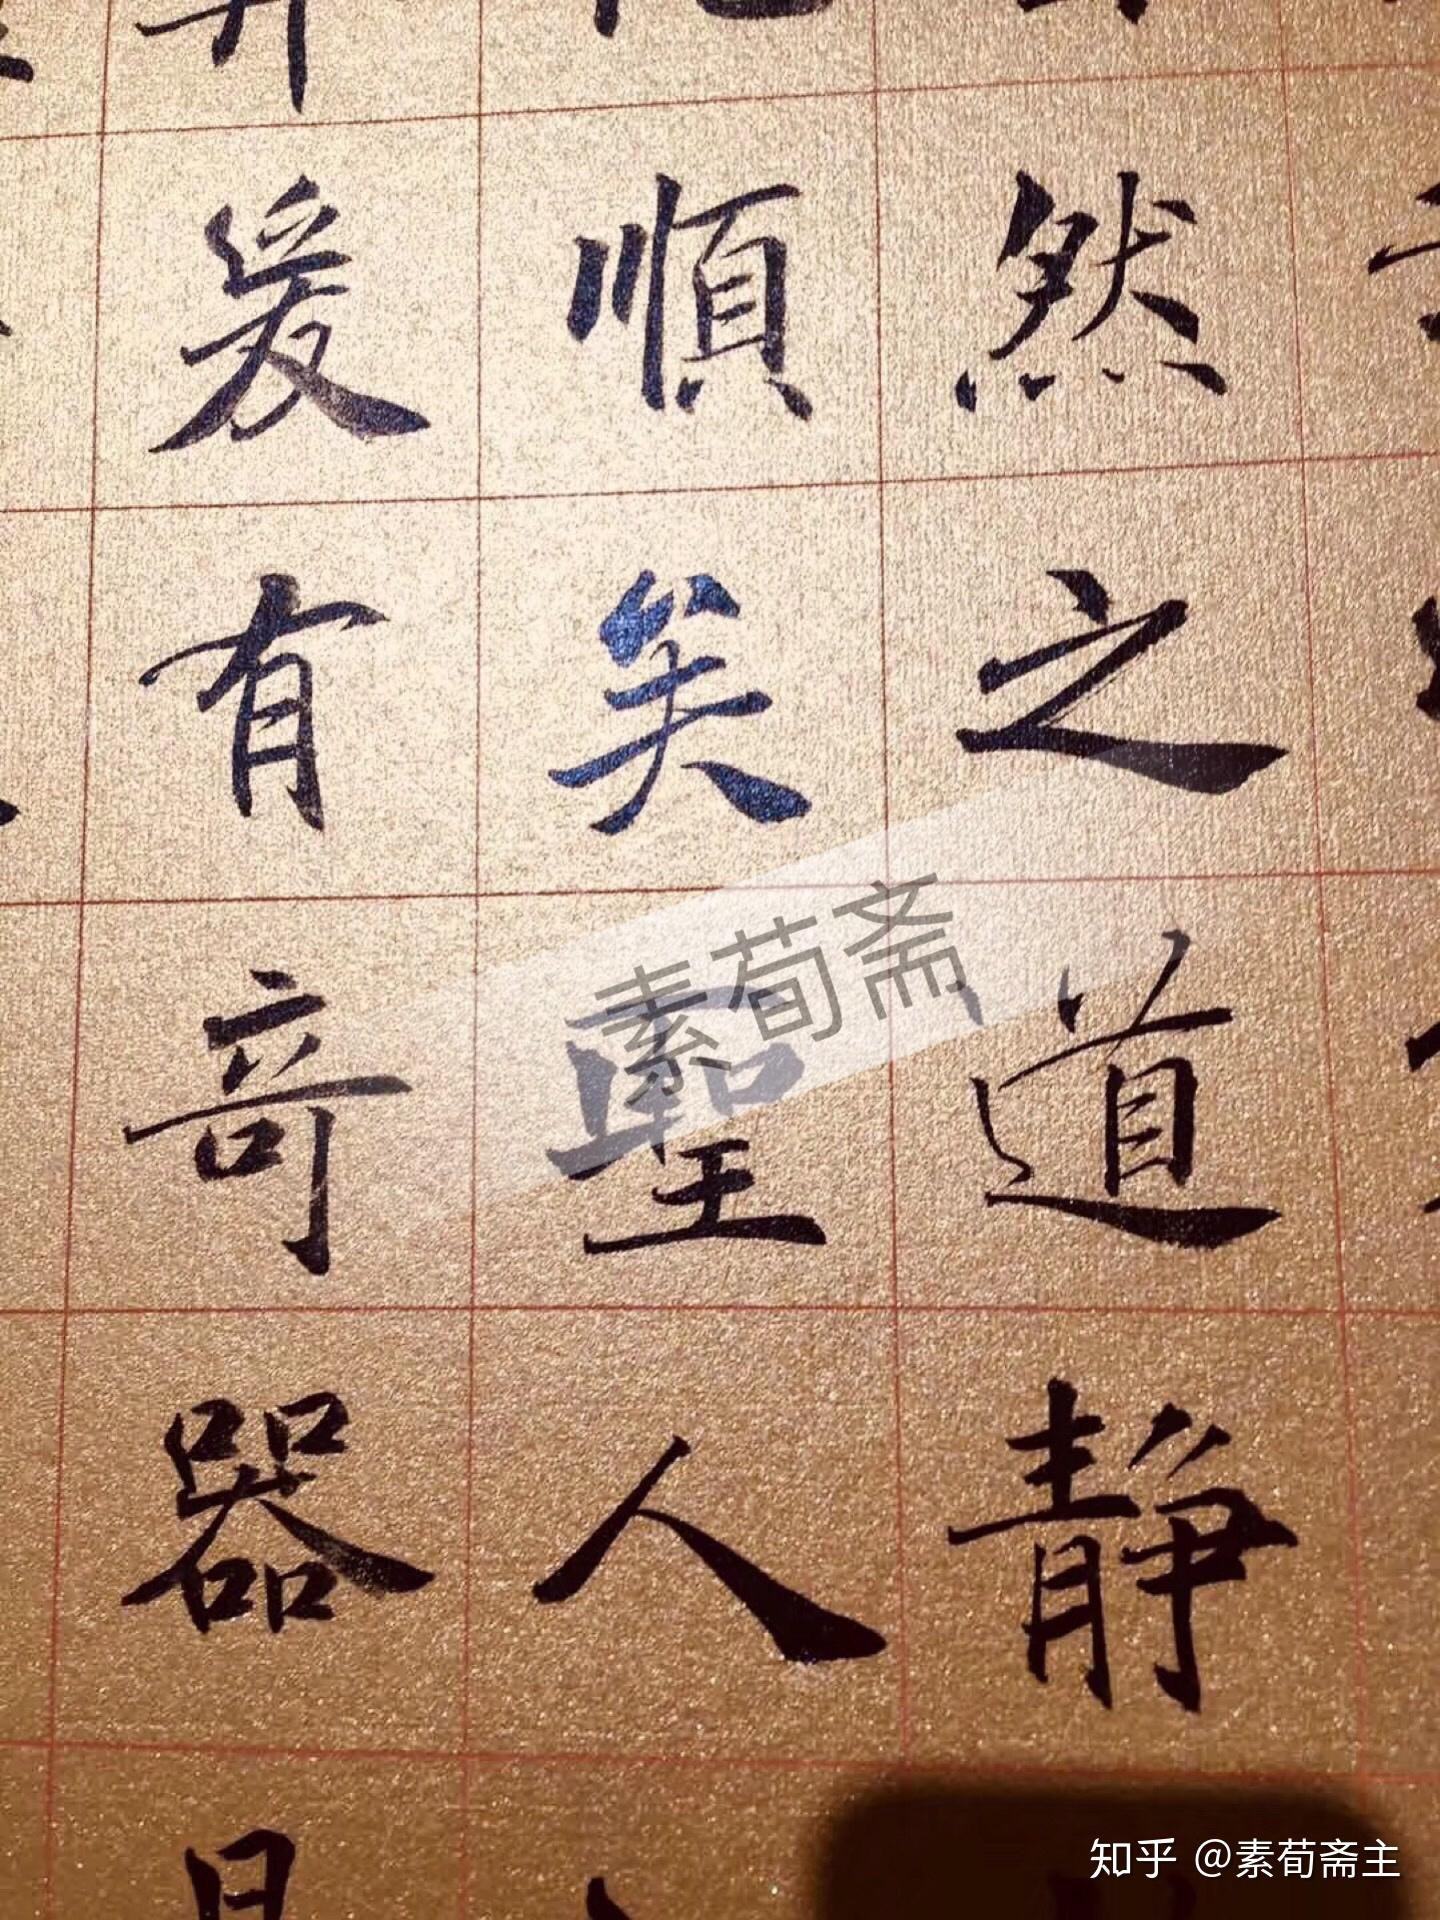 然之道静
順矣聖人
爰有奇器
素荀斋
知乎 @素荀斋主